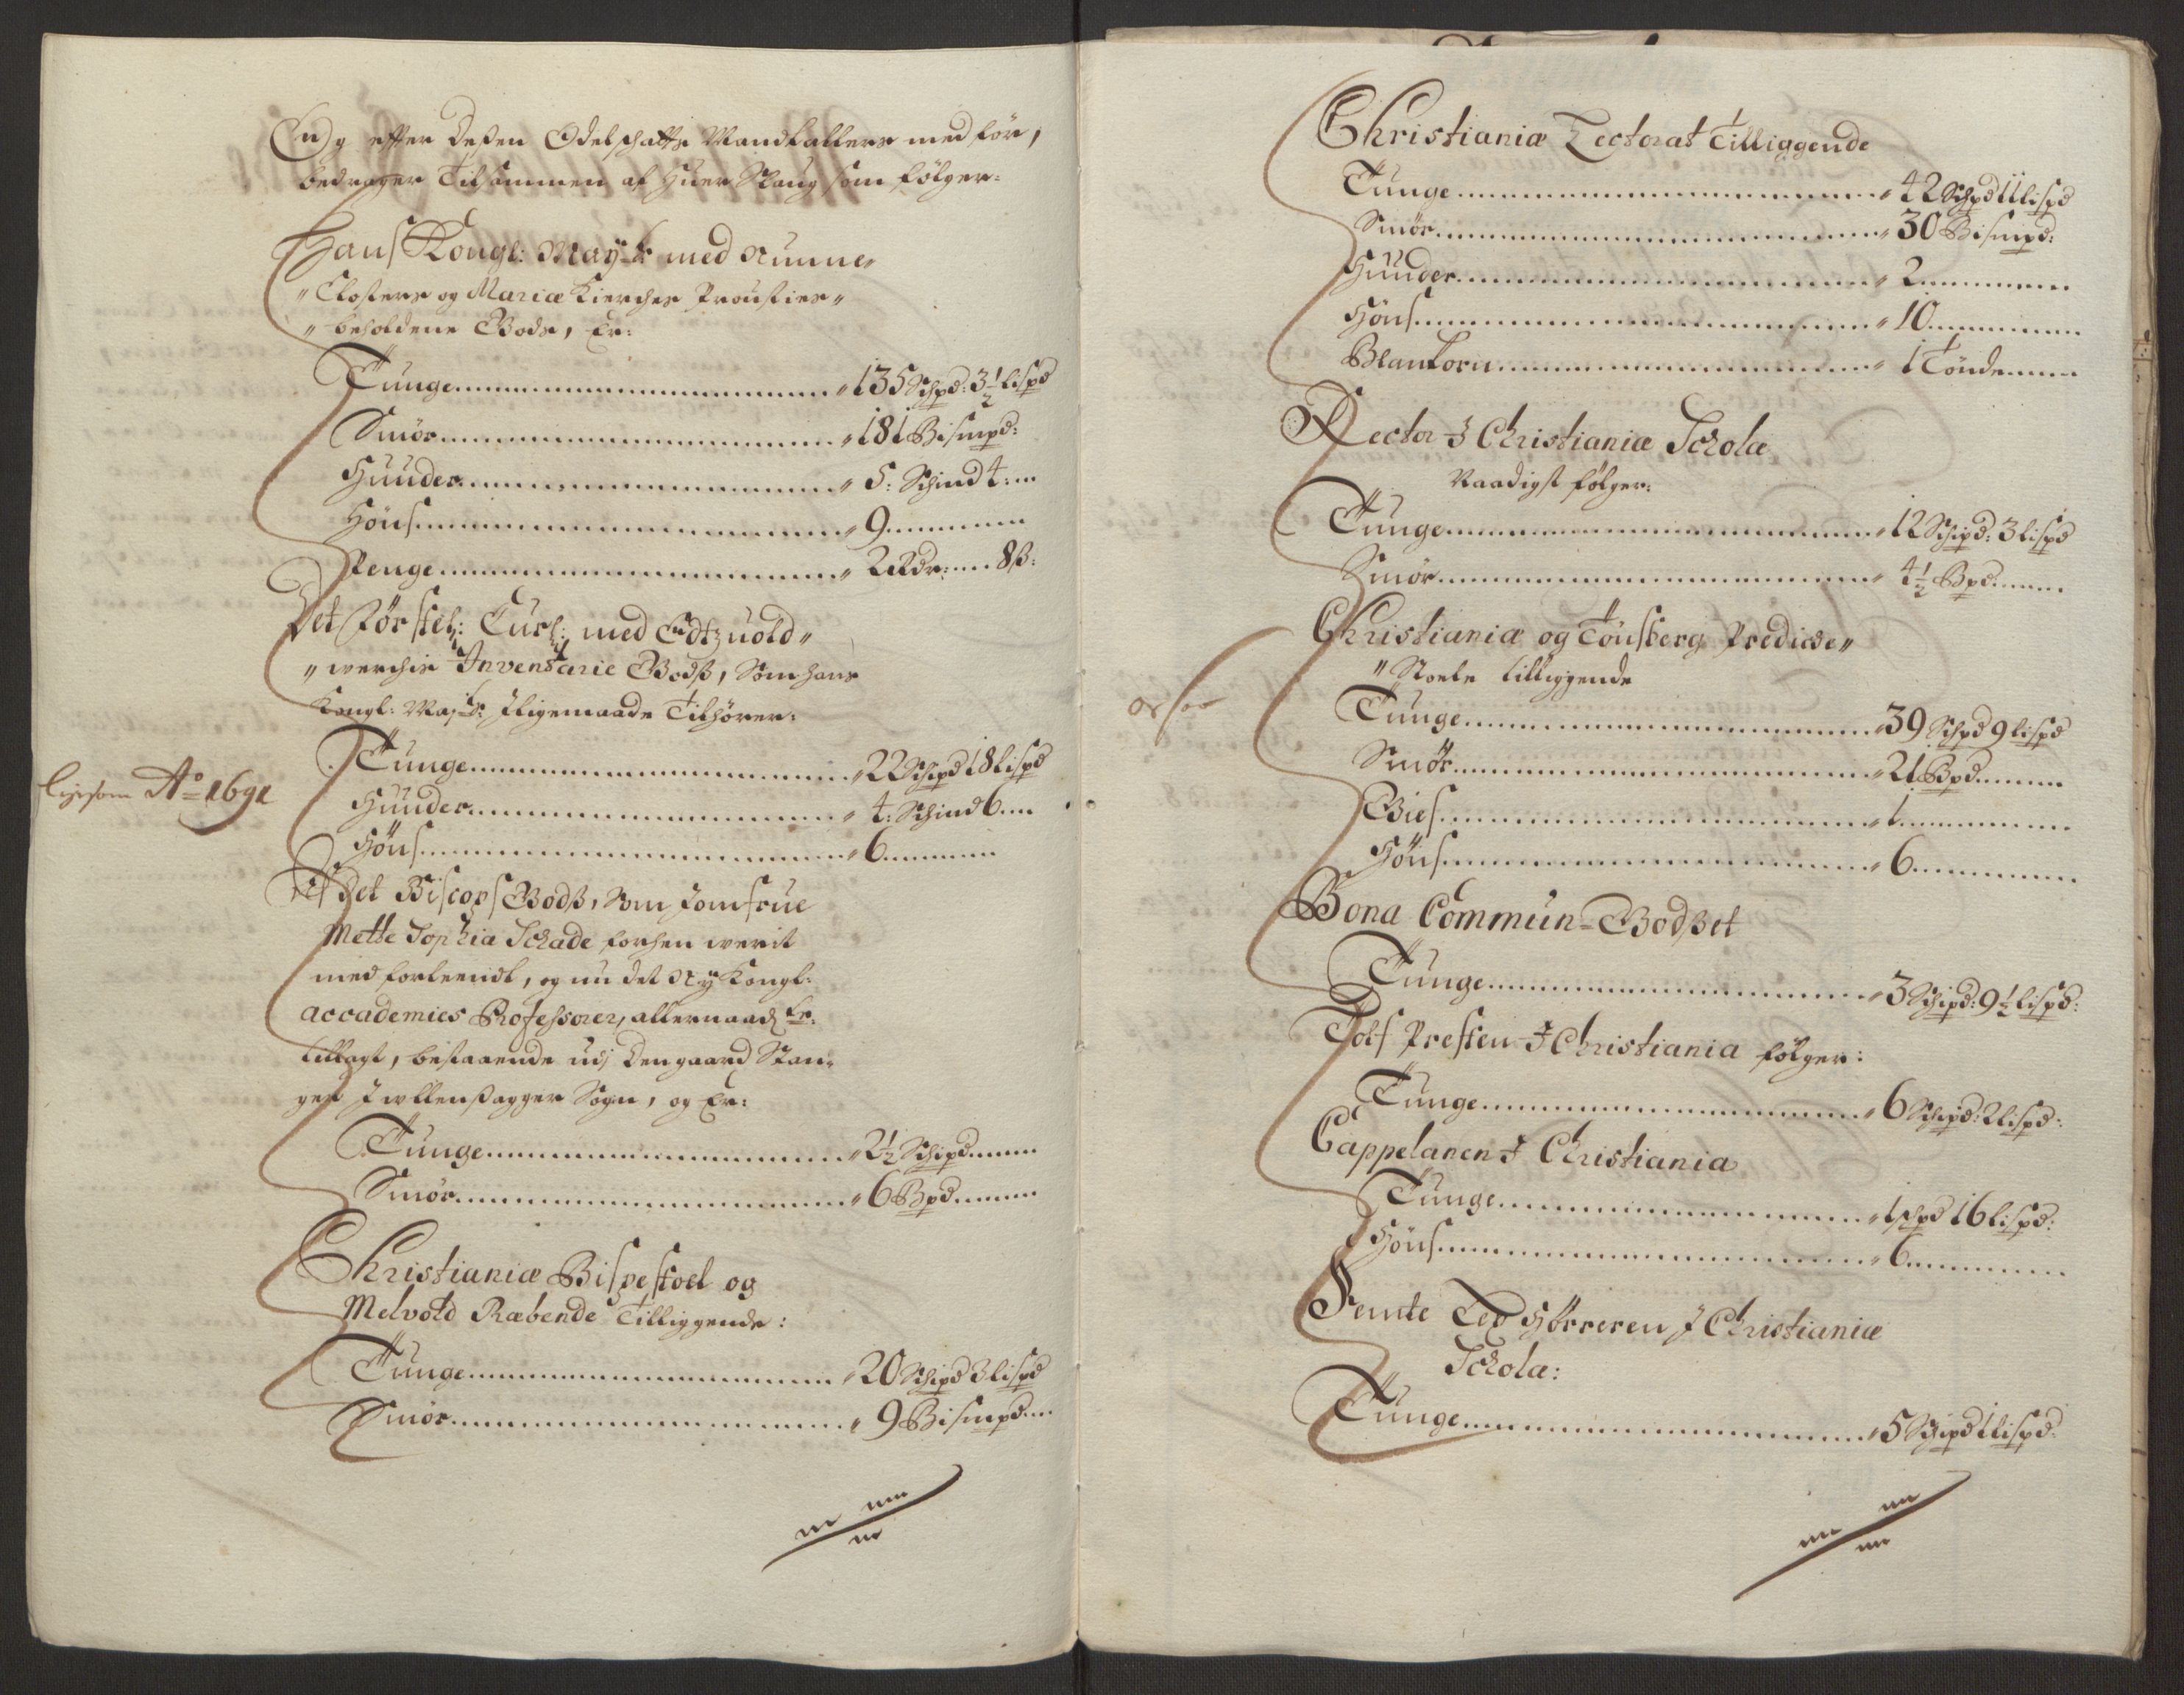 End og effter deßen Odelschatts Mandtallers medför,
bedrager Tilsammen af Huer Slaug som følger:
Hans Kongl: Mayts med Nunne,,
,,Closters og Mariæ Kierches Prousties,,
,,beholdene Godß, Er:
Tunge ,,135 Schpd: 3½ lispd
Smör ,,181 Bismpd:
Huuder ,,5: Schind 4:
Höns ,,9
Penge ,,2 Rdr: 8 ß:
Det Förstel: Curl: med Edtzuold,,
,,werchis Inventarie Godß, Som hans
Kongl: Mayts: Iligemaade Tilhörer:
ligesom Ao 1691
Tunge ,,22 Schpd 18 lispd
Huuder ,,4: Schind 6
Höns ,,6
Af det Biscops Godß, Som Jomfrue
Mette Sophia Schade forhen werit
med forleendt, og nu det Ny Kongl:
Accademies Professorer, allernaadt Er:
tillagt, bestaaende udj den gaard Stan-
ger I Ullensagger Sogn, og Er:
Tunge ,,2½ Schipd
Smör ,,6 Bpd
Christianiæ Bispestoel og
Melvold Præbende Tilliggende:
Tunge ,,20 Schipd 3 lispd
Smör ,,9 Bismpd
Christianiæ Lectorat Tilliggende
Tunge ,,42 Schpd 11 lispd
Smör ,,30 Bismpd:
Huuder ,,2
Höns ,,10
Blankorn ,,1 Tönde
Rector I Christianiæ Schola
Naadigst følger:
Tunge ,,12 Schipd: 3 lispd
Smör ,,4½ Bpd
Christianiæ og Tönsberg Predicke,,
,,Stoele tilliggende
Tunge ,,39 Schpd 9 lispd
Smör ,,21 Bpd
Gies ,,1
Höns ,,6
Bona Commun=Godßet
Tunge ,,3 Schipd: 9½ lispd:
Sogs Presten I Christiania følger:
Tunge ,,6 Schipd: 2 lispd:
Cappelanen I Christiania
Tunge ,,1 schpd 16 lispd:
Höns ,,6
Femte Lex Hörreren I Christianiæ
Schola:
Tunge ,,5 Schipd 1 lispd: